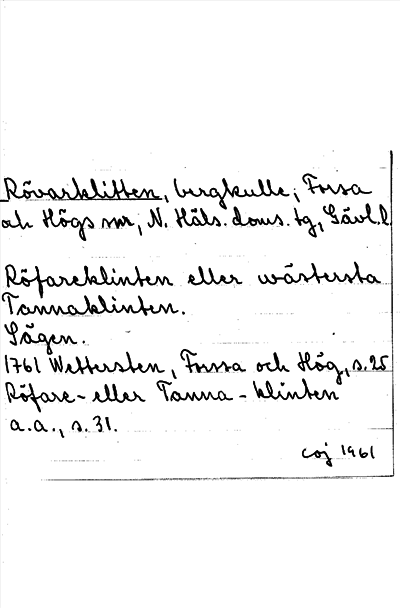 Rövarklitten, bergkulle, Forsa
och Högs snr, N. Häls. doms. tg, Gävl. l.
Röfareklinten eller wästersta
Tannaklinten.
Sägen.
1761 Wettersten, Forssa och Hög, s. 25
Röfare- eller Tanna-klinten
a.a., s. 31.
coj 1961